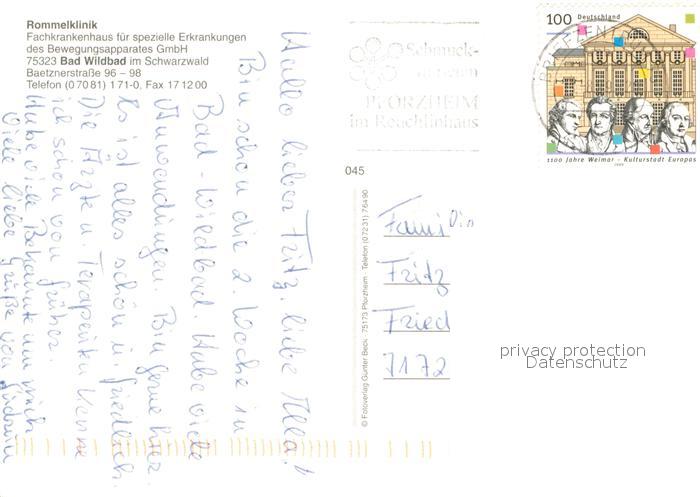 Rommelklinik
Fachkrankenhaus für spezielle Erkrankungen
des Bewegungsapparates GmbH
75323 Bad Wildbad im Schwarzwald
Baetznerstraße 96 – 98
Telefon (0 70 81) 1 71-0, Fax 17 12 00
Hallo lieber Fritz, liebe Ella!
Bin schon die 2. Woche in
Bad-Wiedbad. Habe viele
Anwendungen. Bin gerne hier.
Es ist alles schön u. friedlich.
Die Ärzte u. Terapeuten kenne
ich schon von früher.
Habe viele Bekannte um mich
Viele liebe Grüße von
Schmuck-
museum
PFORZHEIM
im Reuchlinhaus
100 Deutschland
1100 Jahre Weimar - Kulturstadt Europas
1999
045
© Fotoverlag Günter Beck · 75173 Pforzheim · Telefon (0 72 31) 7 64 90
Fami
Fritz
Fried
7172
privacy protection
Datenschutz